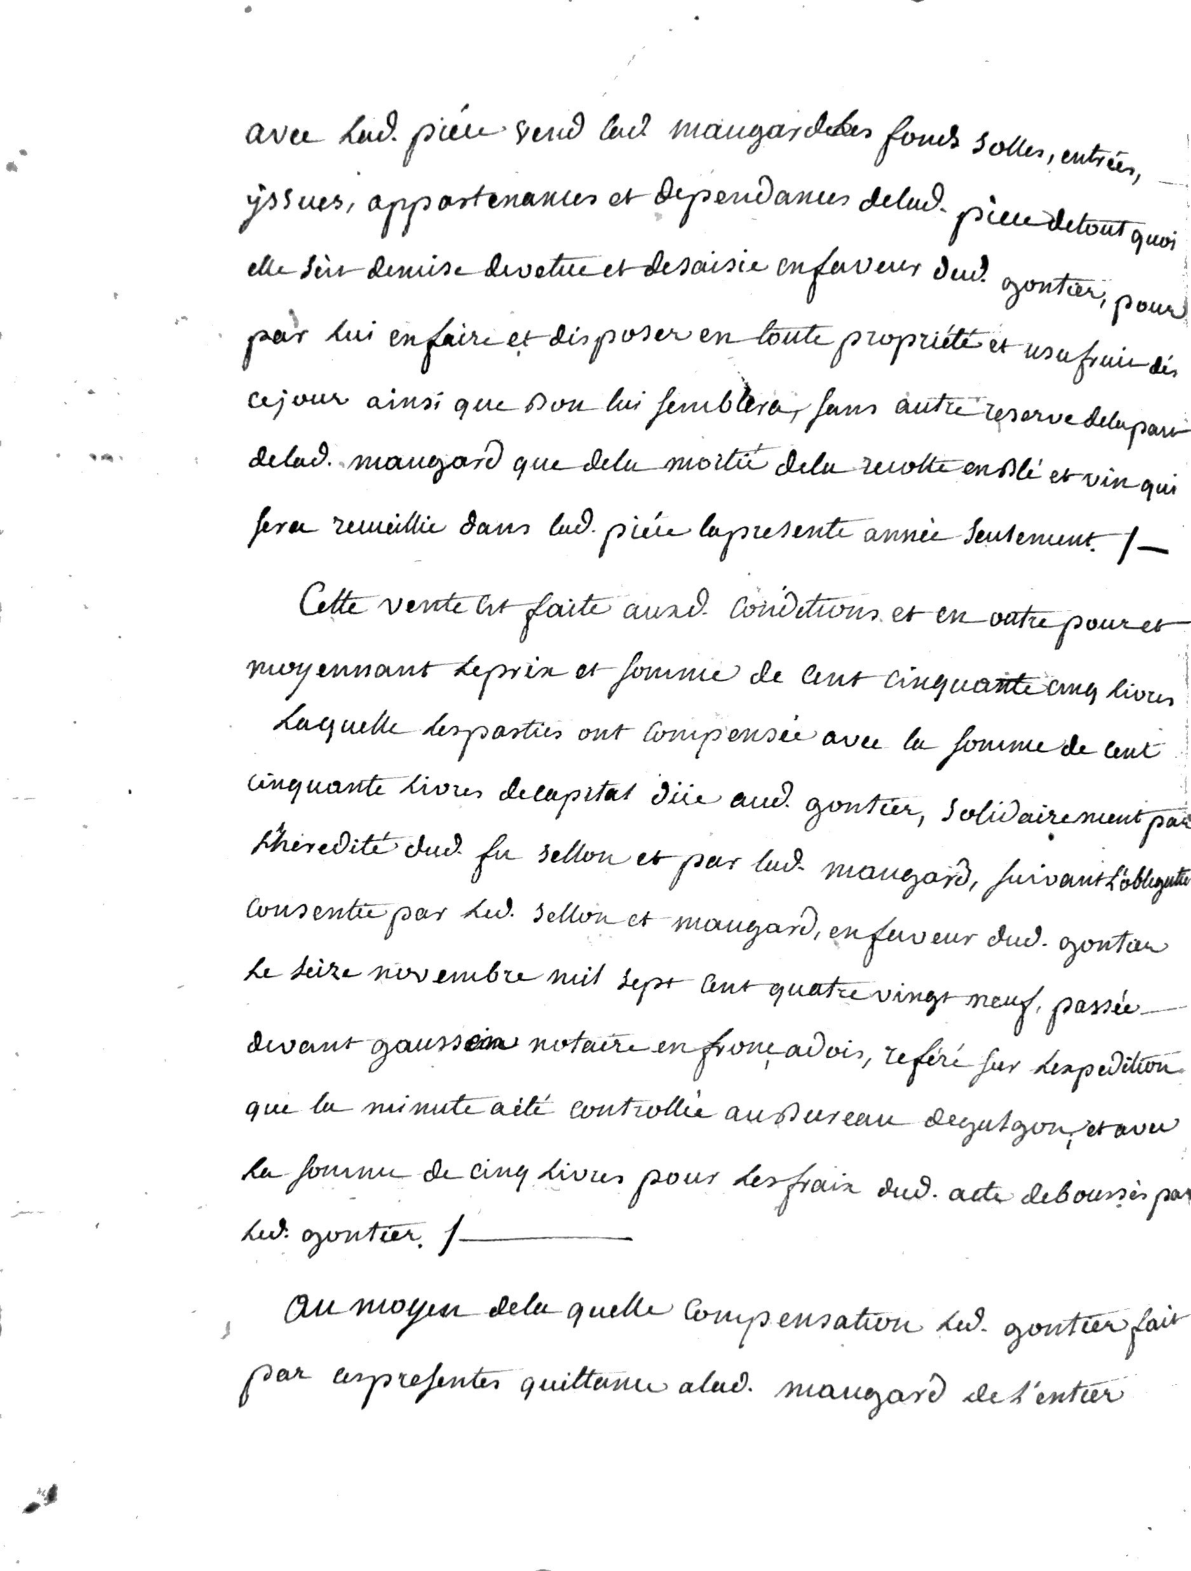 avec lad. piéce vend lad. maugard les fonds solles, entrées,
yssues, appartenances et dependances delad. piece detout quoi
elle sèst demise devetue et desaisie enfaveur dud. gontier, pour
par lui enfaire et disposer en toute propriété et usufruit dés
cejour ainsi que bon lui semblera, sans autre reserve delapart
delad. maugard que dela moitié dela recolte enblé et vin qui
sera recueillie dans lad. piéce lapresente année seulement. /—
Cette vente est faite auxd. conditions et en outre pour et
moyennant leprix et somme de cent cinquante cinq livres
laquelle lesparties ont compensée avec la somme de cent
cinquante livres decapital düe aud. gontier, solidairement par
l'heredité dud. fu sellon et par lad. maugard, suivant l'obligation
consentie par led. sellon et maugard, enfaveur dud. gontier
le seize novembre mil sept cent quatre vingt neuf, passée
devant gaussein notaire en fronçadois, reféré sur lexpedition
que la minute aété controllée aubureau deguîgon, et avec
la somme de cinq livres pour lesfraix dud. acte deboursés par
led. gontier. /—
Au moyen dela quelle compensation led. gontier fait
par cespresentes quittance alad. maugard de l'entier